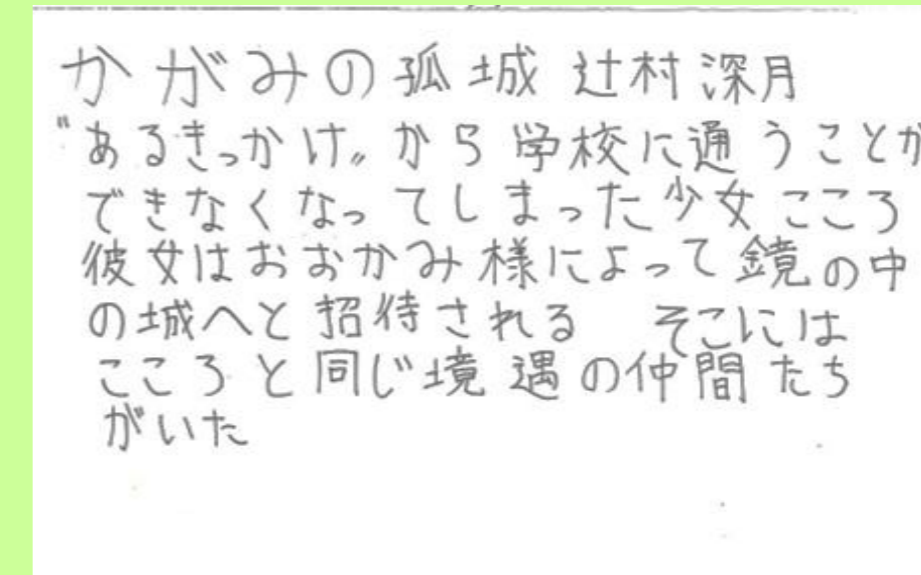 かがみの孤城 辻村深月
"あるきっかけ〟から学校に通うことが
できなくなってしまった少女こころ
彼女はおおかみ様によって鏡の中
の城へと招待される　そこには
こころと同じ境遇の仲間たち
がいた